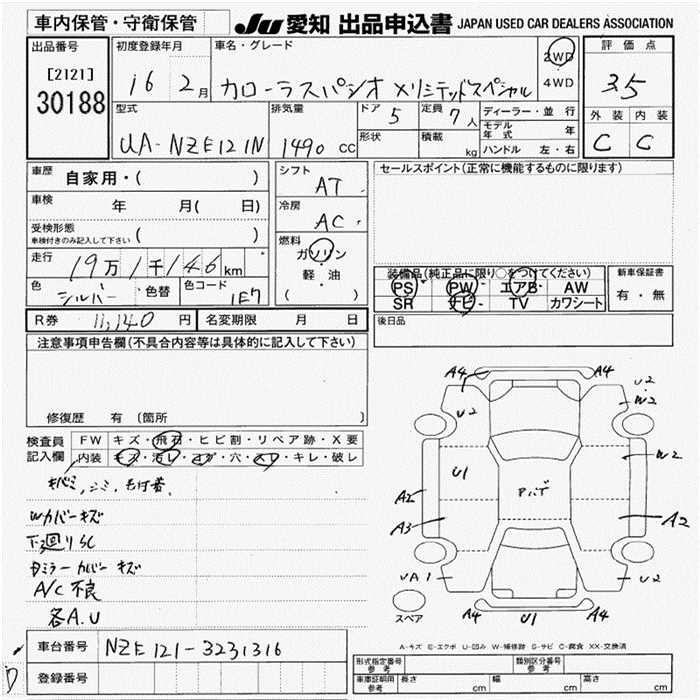 車内保管・守衛保管
JU 愛知 出品申込書 JAPAN USED CAR DEALERS ASSOCIATION
出品番号
[2121]
30188
初度登録年月
16 2月
車名・グレード
カローラスパシオ Xリミテッドスペシャル
2WD
4WD
評価点
3.5
外装 内装
C C
型式
UA-NZE121N
排気量
1490 cc
ドア 5
定員 7人
形状
積載 kg
ディーラー・並行
モデル年式 年
ハンドル 左・右
車歴 自家用・( )
車検 年 月( 日)
受検形態
車検付きのみ記入して下さい ( )
走行 19万1千146km
色 シルバー 色替
色コード 1E7
シフト
AT
冷房
AC
燃料
ガソリン・
軽・油
( )
セールスポイント(正常に機能するものに限ります)
装備品(純正品に限り○をつけてください)
PS・PW・エアB・AW
SR ナビ・TV カワシート
新車保証書
有・無
後日品
R券 11,140 円 名変期限 月 日
注意事項申告欄(不具合内容等は具体的に記入して下さい)
修復歴 有 (箇所 )
検査員記入欄
FW キズ・飛石・ヒビ割・リペア跡・X要
内装 キズ・汚レ・コゲ・穴・スレ・キレ・破レ
Wカバーキズ
下廻りSC
Dミラーカバーキズ
A/C不良
各A.U
A4 A4
U2
U2
W2
U1
W2
アバデ
A2
A3
A2
UA1
U2
スペア
A4 U1 A4
A-キズ E-エクボ U-凹み W-補修跡 S-サビ C-腐食 XX-交換済
車台番号 NZE121-3231316
D 登録番号
形式指定番号参考
類別区分番号参考
車庫証明用参考 長さ cm 幅 cm 高さ cm